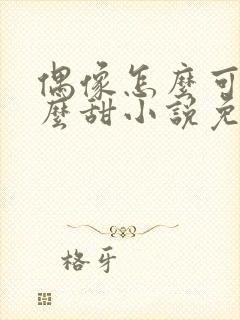 偶像怎麼可
麼甜小説免
格牙